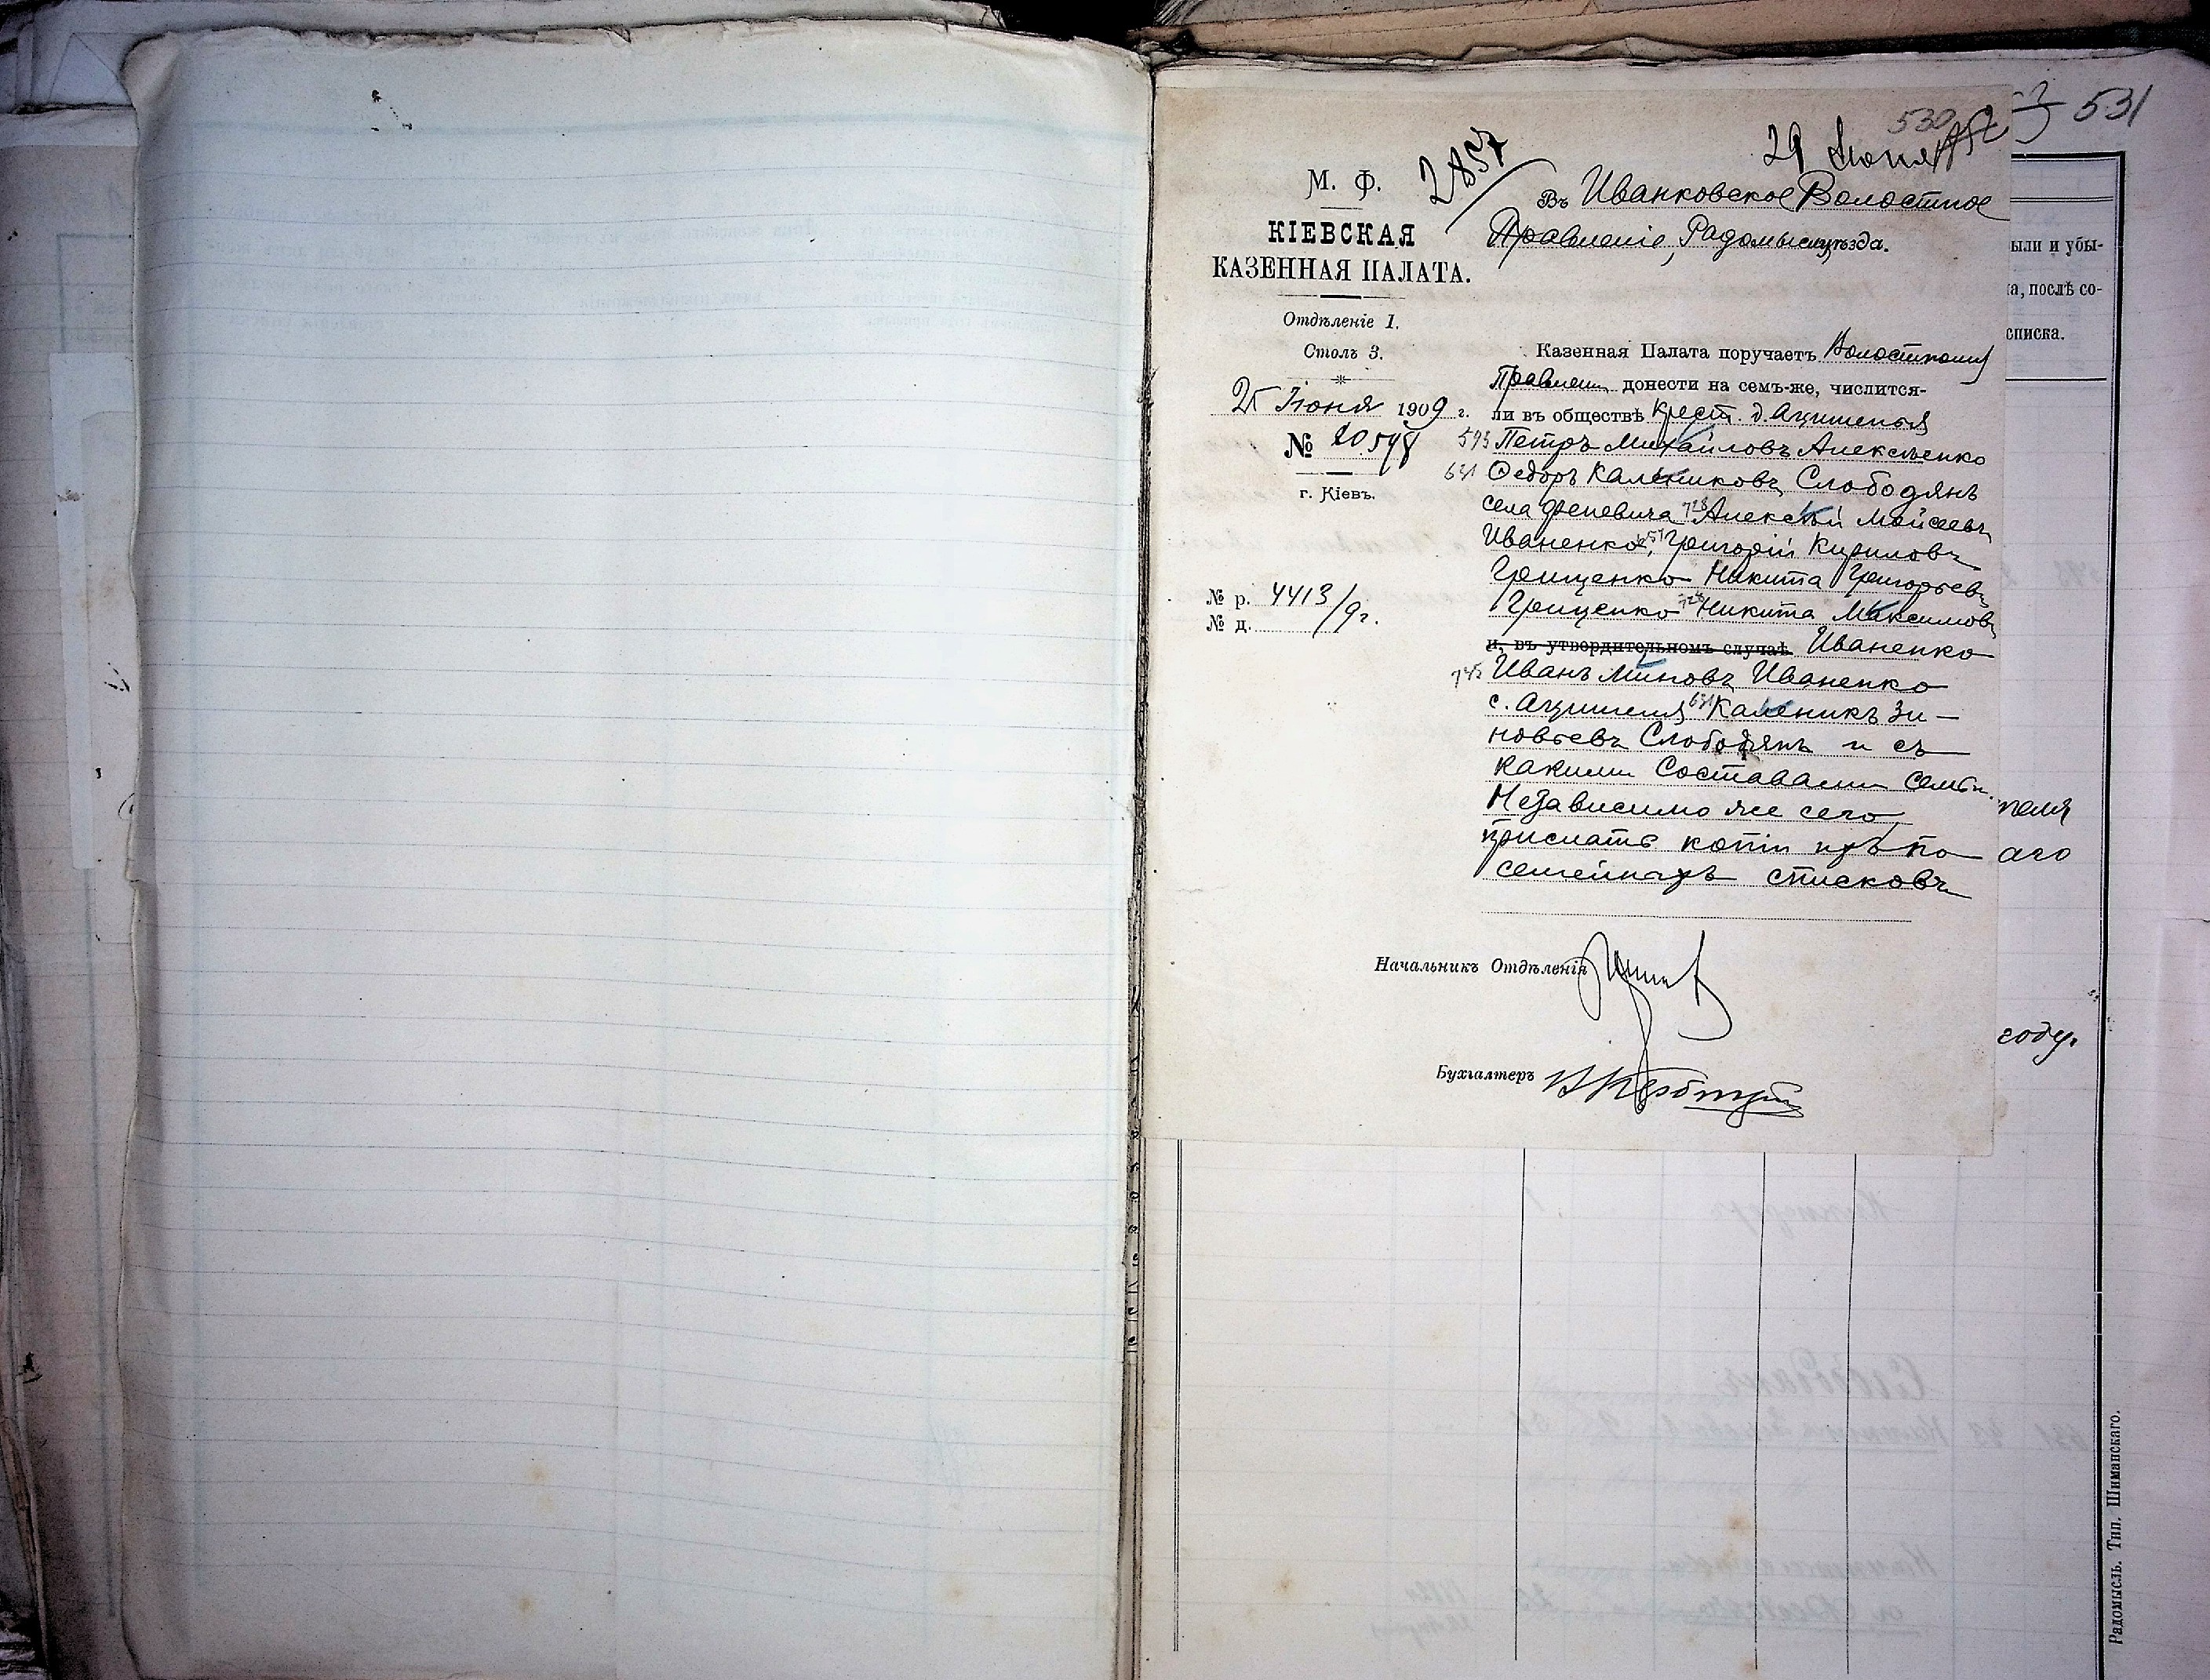 531
530
29 Июня
2857
М. Ф.
КІЕВСКАЯ
КАЗЕННАЯ ПАЛАТА.
Отдѣленіе 1.
Столъ 3.
25 Іюня 1909 г.
№ 20.548
г. Кіевъ.
№ р. 4413/9г.
№ д.
Въ Иванковское Волостное
Правленіе, Радомысл уѣзда.
Казенная Палата поручаетъ Волостному
Правлен донести на семъ-же, числится-
ли въ обществѣ крест. д.
593 Петръ Михайловъ Алексѣенко
631 Федоръ Калениковъ Слободянъ
села Феневича 728 Алексѣй Мойсеевъ
Иваненко, Григорій Кириловъ
Грищенко Никита Григорьевъ
Грищенко 728 Никита Максимовъ
и, въ утвердительномъ случаѣ Иваненко
745 Иванъ Миновъ Иваненко
с. 631 Каленикъ Зи-
новьевъ Слободянъ и съ
какими составами семьи.
Независимо же сего
прислать копіи изъ по
семейныхъ списковъ
Начальникъ Отдѣленія
Бухгалтеръ
ыли и убы-
а, послѣ со-
списка.
пеля
аго
соду.
Радомысль. Тип. Шиманскаго.